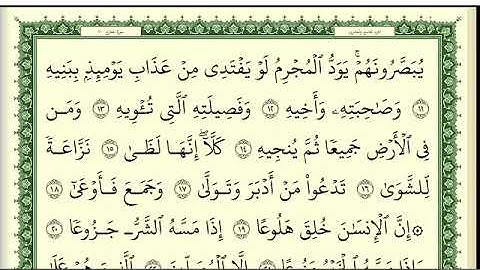 يُبَصَّرُونَهُمْ ۚ يَوَدُّ الْمُجْرِمُ لَوْ يَفْتَدِى مِنْ عَذَابِ يَوْمِئِذٍۭ بِبَنِيهِ
١١ وَصَـٰحِبَتِهِۦ وَأَخِيهِ ١٢ وَفَصِيلَتِهِ الَّتِى تُـْٔوِيهِ ١٣ وَمَن
فِى الْأَرْضِ جَمِيعًا ثُمَّ يُنجِيهِ ١٤ كَلَّآ ۖ إِنَّهَا لَظَىٰ ١٥ نَزَّاعَةً
لِّلشَّوَىٰ ١٦ تَدْعُوا۟ مَنْ أَدْبَرَ وَتَوَلَّىٰ ١٧ وَجَمَعَ فَأَوْعَىٰٓ ١٨
۞ إِنَّ الْإِنسَـٰنَ خُلِقَ هَلُوعًا ١٩ إِذَا مَسَّهُ الشَّرُّ جَزُوعًا ٢٠